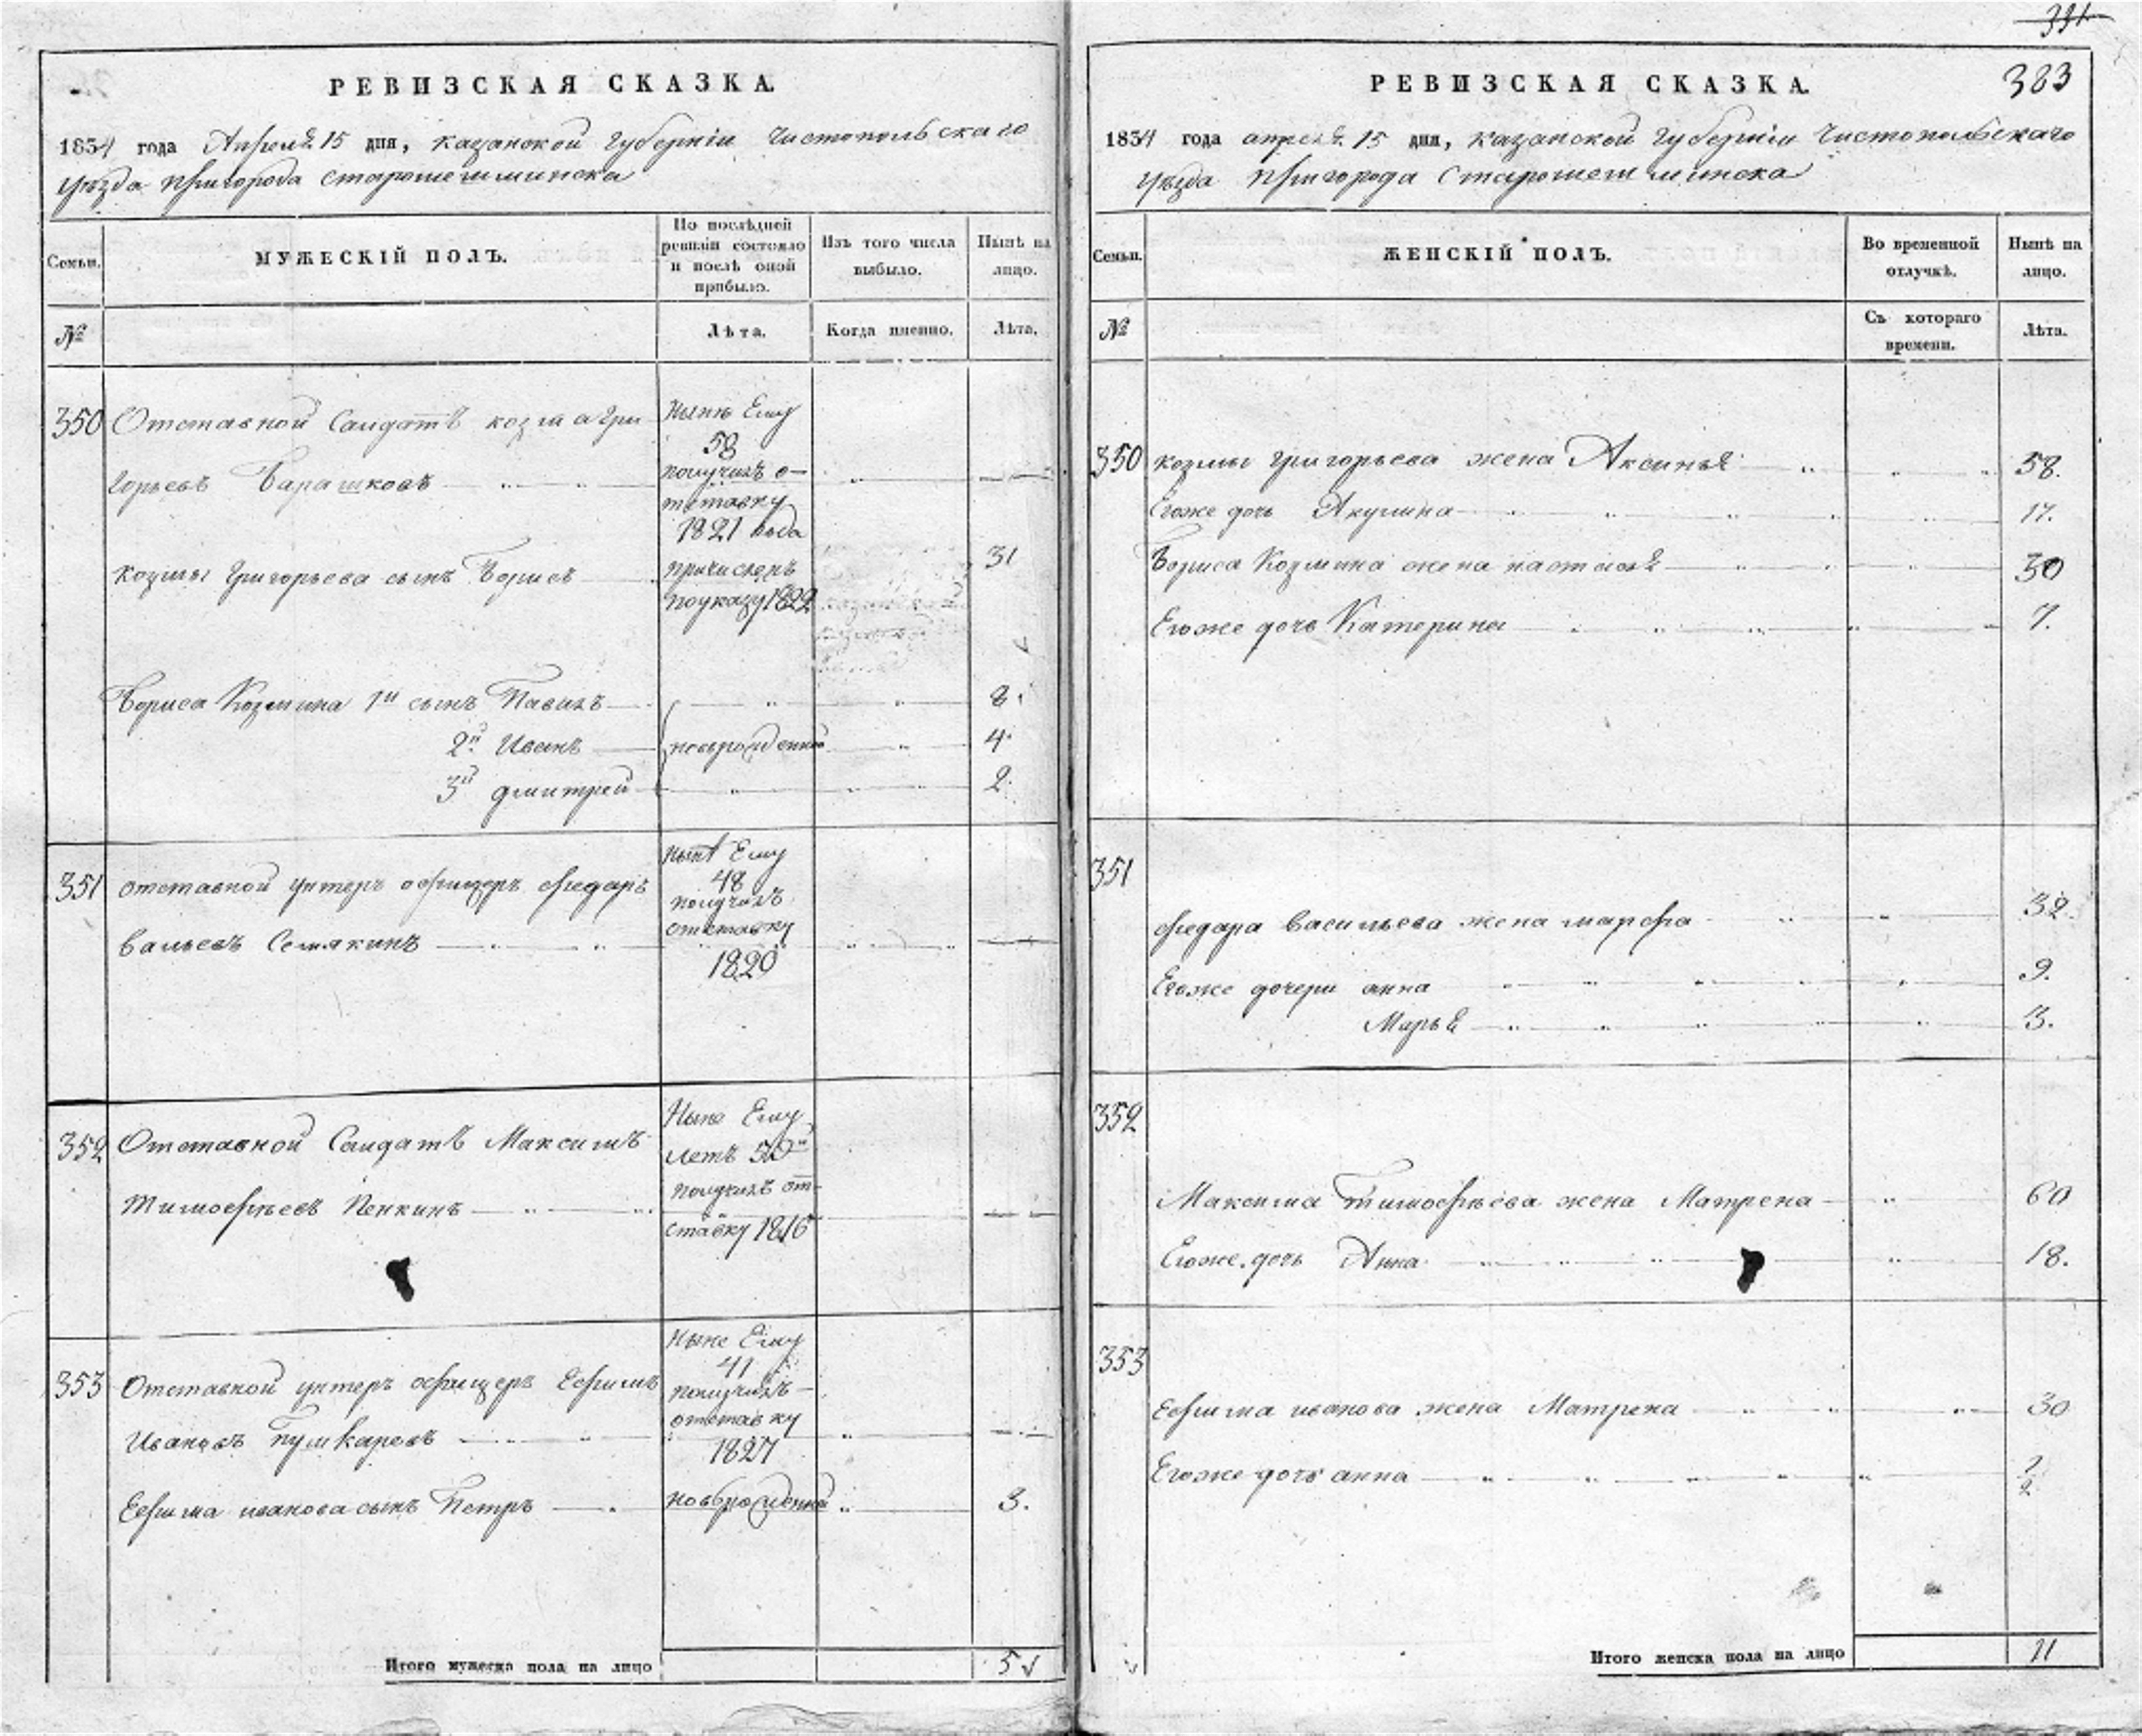 РЕВИЗСКАЯ СКАЗКА.
1834 года Апреля 15 дня, казанской губернiи Чистопольскаго
уѣзда пригорода старошешминска
Семьи.
МУЖЕСКIЙ ПОЛЪ.
По послѣдней ревизiи состояло и послѣ оной прибыло.
Изъ того числа выбыло.
Нынѣ на лицо.
№
Лѣта.
Когда именно.
Лѣта.
350 Отставной Салдатъ козма Гри ныне Ему
58
горьевъ Барашковъ получилъ о-
тставку
1821 года
козмы Григорьева сынъ Борисъ причисленъ 31
поуказу 1822
Бориса Козмина 1й сынъ Павилъ 8.
2й Иванъ новорожденный 4.
3й дмитрей 2.
351 отставной унтеръ офицеръ федаръ нынѣ Ему
48
получилъ
вальевъ Семякинъ отставку
1820
352 Отставной Салдатъ Максимъ Ныне Ему
летъ 50
Тимофѣевъ Пенкинъ получилъ от-
ставку 1816
353 Отставной унтеръ офицеръ Ефимъ Ныне Ему
41
получилъ
Ивановъ Пушкаревъ отставку
1827
Ефима иванова сынъ Петръ новорожденный 3.
Итого мужеска пола на лицо 5
331
383
РЕВИЗСКАЯ СКАЗКА.
1834 года апреля 15 дня, казанской губернiи Чистопольскаго
уѣзда пригорода Старошешминска
Семьи.
ЖЕНСКIЙ ПОЛЪ.
Во временной отлучкѣ.
Нынѣ на лицо.
№
Съ котораго времени.
Лѣта.
350 козмы григорьева жена Аксинья 58.
Егоже дочь Акулина 17.
Бориса Козмина жена настасья 30
Егоже дочь Катерина 7.
351
федара Васильева жена марфа 32.
Егоже дочери анна 9.
Марья 3.
352
Максима Тимофѣева жена Матрена 60
Егоже дочь Анна 18.
353
Ефима иванова жена Матрена 30
Егоже дочь анна
Итого женска пола на лицо 11